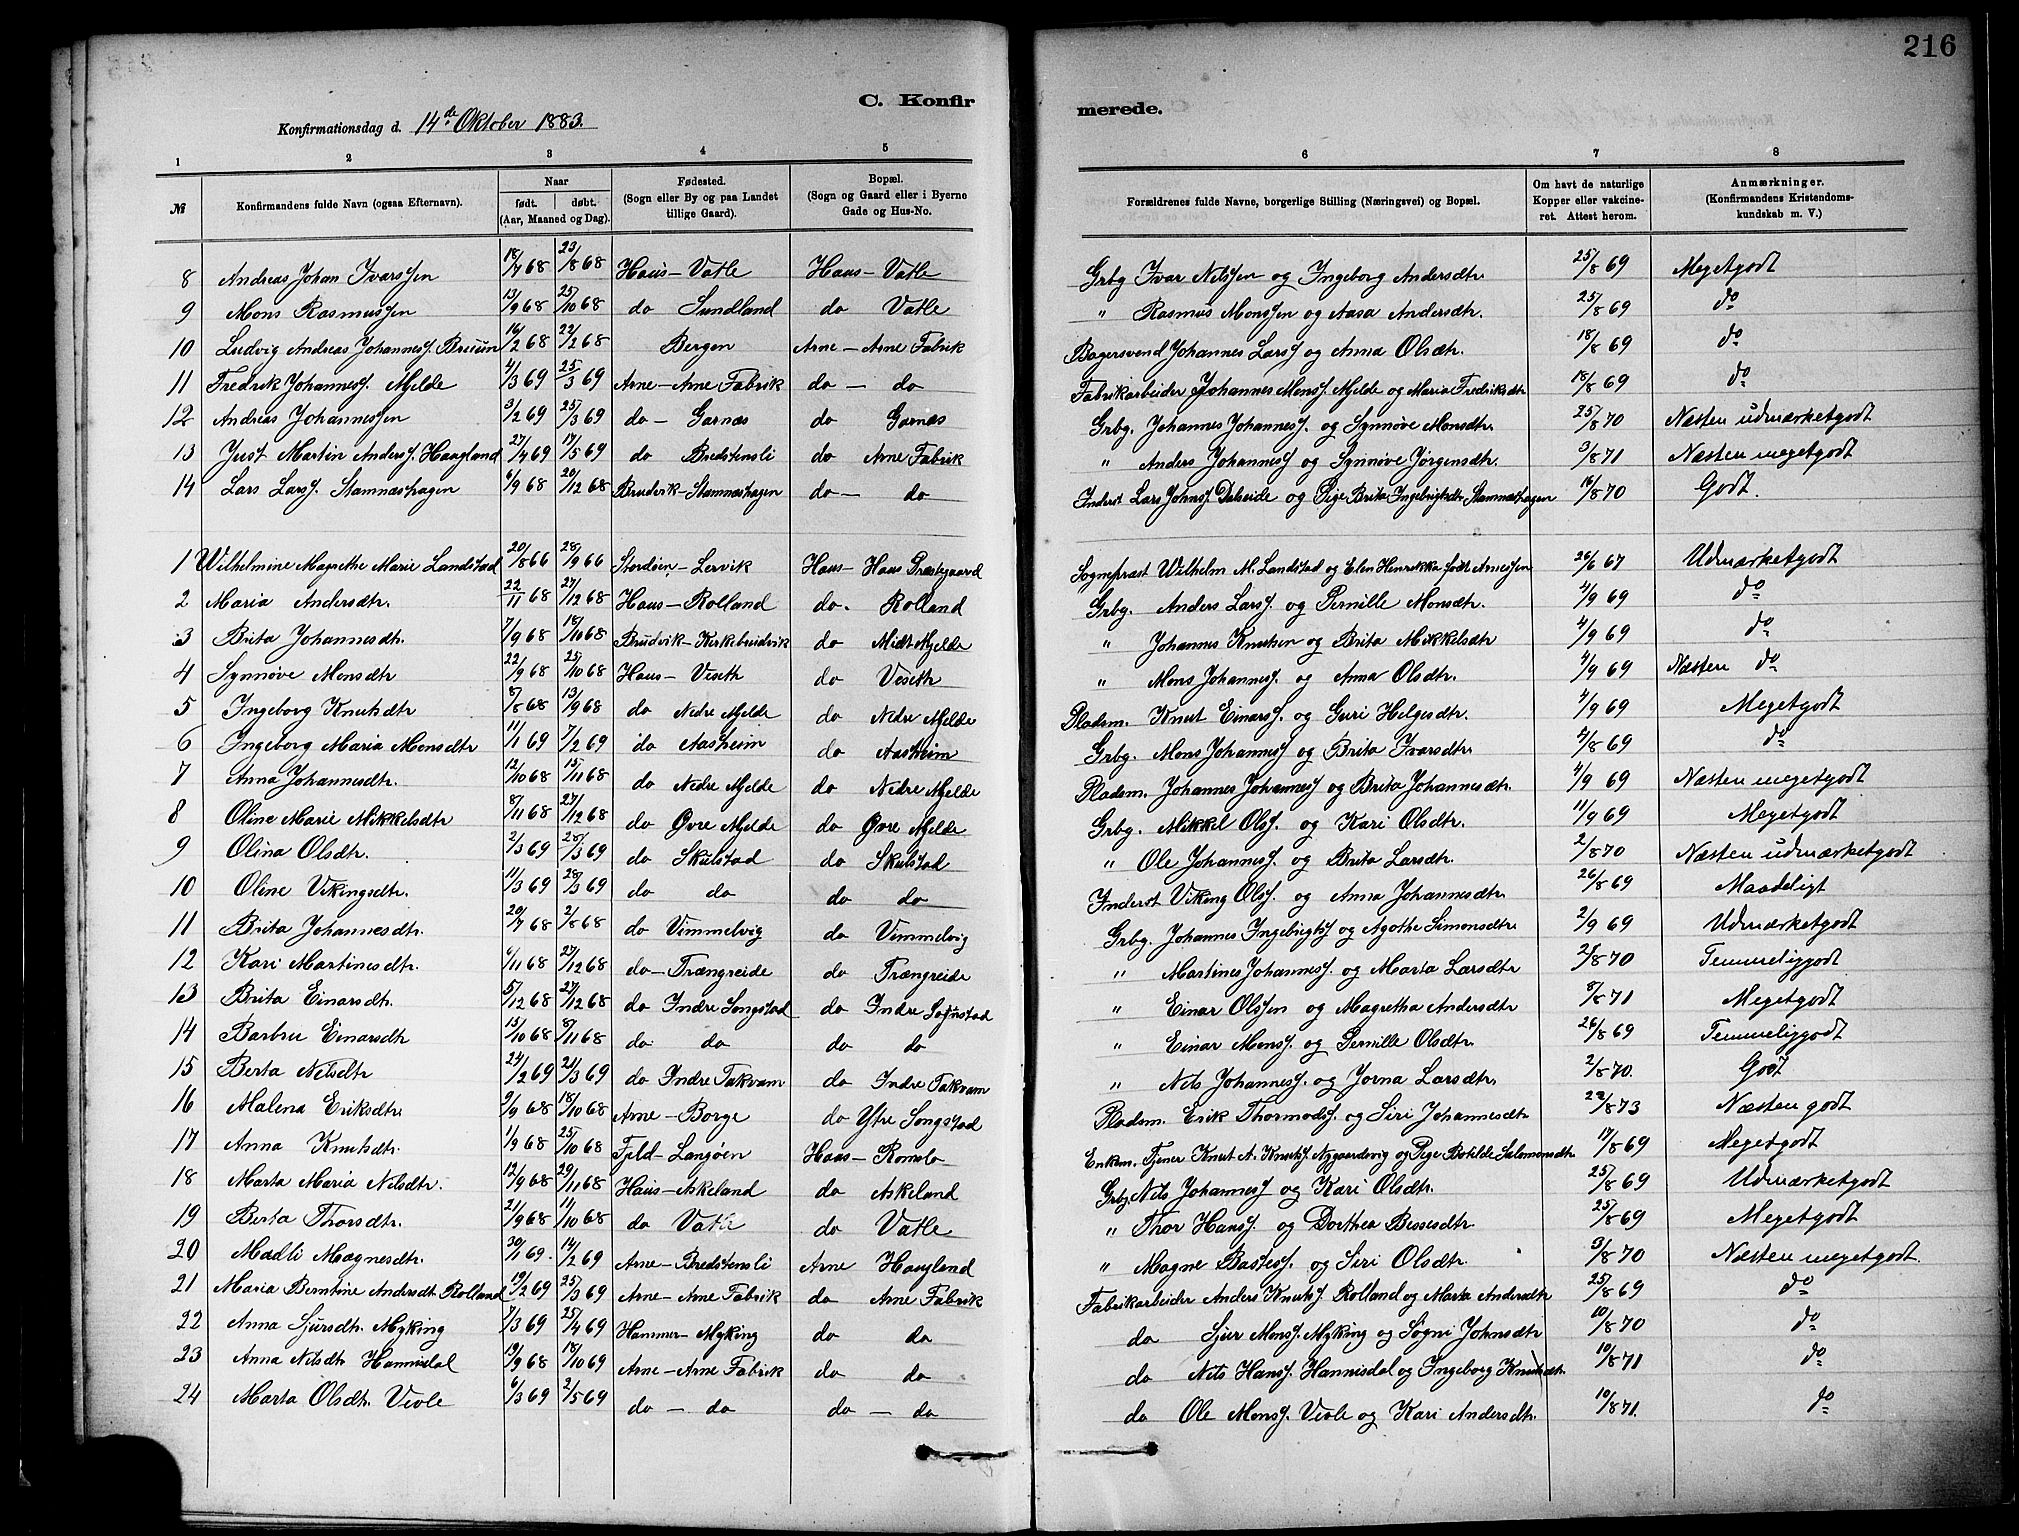 216
C. Konfirmerede.
Konfirmationsdag d. 14de Oktober 1883.
1 2 3 4 5 6 7 8
№ Konfirmandens fulde Navn (ogsaa Efternavn). Naar født. døbt. (Aar, Maaned og Dag). Fødested. (Sogn eller By og paa Landet tillige Gaard). Bopæl. (Sogn og Gaard eller i Byerne Gade og Hus-No. Forældrenes fulde Navne, borgerlige Stilling (Næringsvei) og Bopæl. Om havt de naturlige Kopper eller vakcineret. Attest herom. Anmærkninger. (Konfirmandens Kristendomskundskab m. V.)
8 Andreas Johan Ivarssen 18/7 68 23/8 68 Haus – Vatle Haus – Vatle Grbg Ivar Nilssen og Ingeborg Andersdtr 25/8 69 Megetgodt
9 Mons Rasmussen 13/9 68 25/10 68 do Sundland do Vatle " Rasmus Monssen og Aasa Andersdtr. 25/8 69 do
10 Ludvig Andreas Johanness. Bruun 16/2 68 22/2 68 Bergen Arne – Arne Fabrik Bagersvend Johannes Larss og Anna Olsdtr. 18/8 69 do
11 Fredrik Johanness. Mjelde 4/3 69 25/3 69 Arne – Arne Fabrik do – do Fabrikarbeider Johannes Monss. Mjelde og Maria Fredriksdtr 18/8 69 do
12 Andreas Johannessen 3/2 69 25/3 69 do – Garnæs do Garnæs Grbg. Johannes Johanness. og Synnøve Monsdtr. 25/8 70 Næsten udmærketgodt
13 Just Martin Anderss. Haugland 27/4 69 17/5 69 do Bredstensli do Arne Fabrik " Anders Johanness og Synnøve Jørgensdtr. 3/8 71 Næsten megetgodt
14 Lars Larss. Stamneshagen 6/9 68 20/12 68 Bruvik – Stamneshagen do – do Inderst Lars Johnss Daleide og Pige Brita Ingebrigtsdtr Stamneshagen 16/8 70 Godt.
1 Wilhelmine Magrethe Marie Landstad 20/8 66 28/9 66 Stordøen – Lervik Haus – Haus Præstegaard Sognepræst Wilhelm M. Landstad og Elen Henrikke født Arnesen 26/6 67 Udmærketgodt
2 Maria Andersdtr. 22/11 68 27/12 68 Haus – Rolland do. Rolland Grbg. Anders Larss. og Pernille Monsdtr. 4/9 69 do
3 Brita Johannesdtr. 7/9 68 18/10 68 Bruvik – Kirkebruvik do Midt Mjelde " Johannes Knutsen og Brita Mikkelsdtr 4/9 69 do
4 Synnøve Monsdtr 22/9 68 25/10 68 Haus – Veseth do Veseth " Mons Johanness. og Anna Olsdtr. 4/9 69 Næsten do
5 Ingeborg Knutsdtr 8/8 68 13/9 68 do Nedre Mjelde do Nedre Mjelde Pladsm. Knut Einarss. og Guri Helgesdtr. 4/9 69 Megetgodt
6 Ingeborg Maria Monsdtr 11/1 69 7/2 69 do Aasheim do Aasheim Grbg. Mons Johanness. og Brita Ivarsdtr. 4/8 69 do
7 Anna Johannesdtr. 12/10 68 15/11 68 do Nedre Mjelde do Nedre Mjelde Pladsm. Johannes Johanness og Brita Johannesdtr. 4/9 69 Næsten megetgodt
8 Oline Marie Mikkelsdtr 8/11 68 27/12 68 do Øvre Mjelde do Øvre Mjelde Grbg. Mikkel Olss. og Kari Olsdtr. 11/9 69 Megetgodt
9 Olina Olsdtr. 2/3 69 28/3 69 do Skulstad do Skulstad " Ole Johanness. og Brita Larsdtr. 2/8 70 Næsten udmærketgodt
10 Oline Vikingsdtr. 11/3 69 28/3 69 do do do do Inderst Viking Olss. og Anna Johannesdtr 26/8 69 Maadeligt
11 Brita Johannesdtr. 20/7 68 2/8 68 do Vimmelvig do Vimmelvig Grbg. Johannes Ingebrigtss og Agathe Simonsdtr 2/9 69 Udmærketgodt
12 Kari Martinesdtr. 6/11 68 27/12 68 do – Trængreide do Trængreide " Martines Johanness. og Marta Larsdtr 2/8 70 Temmeliggodt
13 Brita Einarsdtr. 5/12 68 27/12 68 do Indre Songstad do Indre Songstad " Einar Olssen og Magretha Andersdtr 8/8 71 Megetgodt
14 Barbru Einarsdtr 15/10 68 8/11 68 do do do do " Einar Monss. og Pernille Olsdtr. 26/8 69 Temmeliggodt
15 Berta Nilsdtr 24/2 69 21/3 69 do Indre Takvam do Indre Takvam " Nils Johanness. og Jorna Larsdtr. 2/8 70. Godt
16 Malena Eriksdtr. 9/9 68 18/10 68 Arne – Borge do Ytre Songstad Pladsm. Erik Thormodss. og Siri Johannesdtr 22/8 73 Næsten godt
17 Anna Knutsdtr. 1/9 68 25/10 68 Fjeld – Langøen Haus – Romslo Enkem. Tjener Knut A. Knutss. Nygaardsvig og Pige Botilde Salomonsdtr 17/8 69 Megetgodt
18 Marta Maria Nilsdtr. 12/9 68 29/11 68 Haus – Askeland do Askeland Grbg. Nils Johanness og Kari Olsdtr. 25/8 69 Udmærketgodt
19 Berta Thorsdtr. 21/9 68 11/10 68 do Vatle do Vatle " Thor Hanss. og Dorthea Bessesdtr 25/8 69 Megetgodt
20 Madli Magnesdtr. 30/1 69. 14/2 69 Arne – Bredstensli Arne Haugland " Magne Bastess. og Siri Olsdtr. 3/8 70 Næsten megetgodt.
21 Maria Berntine Andersdtr. Rolland 19/2 69 25/3 69 Arne – Arne Fabrik do Arne Fabrik Fabrikarbeider Anders Knutss. Rolland og Marta Andersdtr 25/8 69 do
22 Anna Sjursdtr. Myking 7/3 69 25/4 69 Hammer – Myking do do do Sjur Monss. Myking og Søgni Johnsdtr 10/8 70 do
23 Anna Nilsdtr Hannisdal 19/9 68 18/10 69 Arne – Arne Fabrik do do do Nils Hanss. Hannisdal og Ingeborg Knutsdtr. 10/8 71 do
24 Marta Olsdtr. Viole 6/3 69 2/5 69 do – do do – do do Ole Monss. Viole og Kari Andersdtr. 10/8 71. do